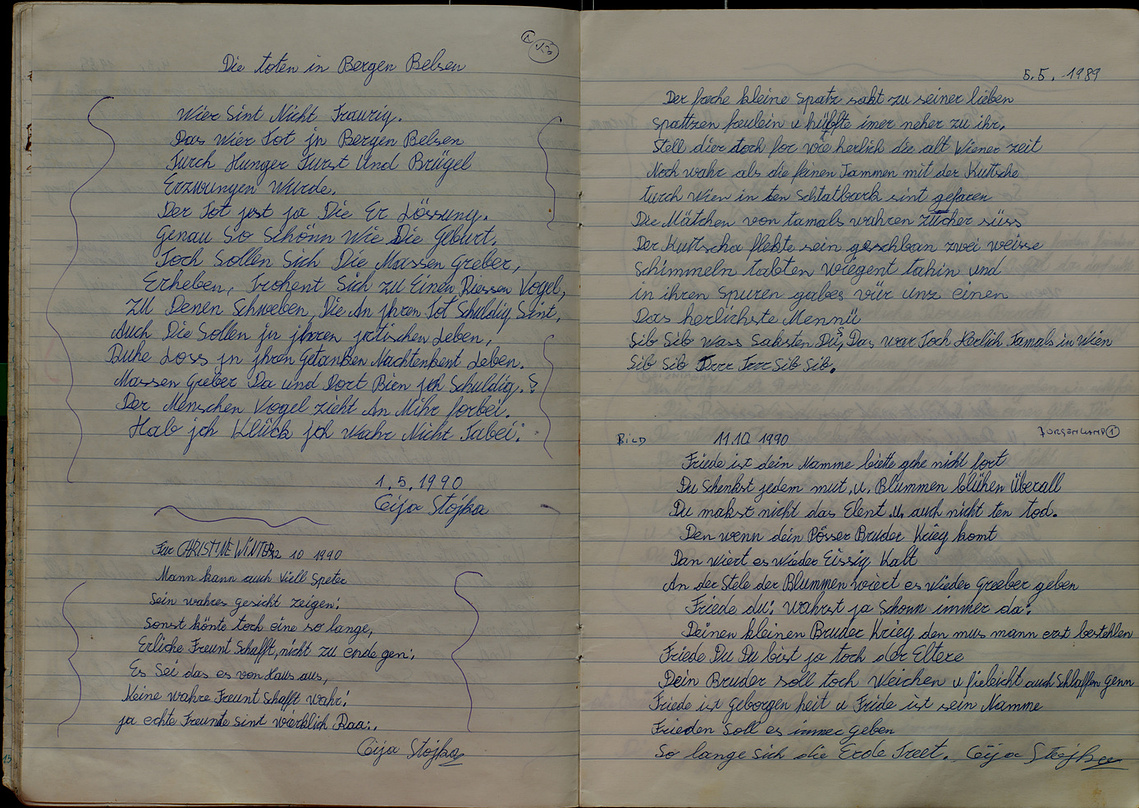 13
Die toten in Bergen Belsen
Wier Sint Nicht Traurig.
Das Wier Tot jn Bergen Belsen
Turch Hunger Turst Und Brügel
Erzwungen Wurde.
Der Tot jest ja Die Er Lössung.
Genau So Schönn Wie Die Geburt.
Toch Sollen Sich Die Massen Greber,
Erheben, Trohent Sich zu Einen Riessen Vogel,
Zu Denen Schweben, Die An jhren Tot Schuldig Sint,
Auch Die Sollen jn jhren jrtischen Leben,
Ruhe Loss jn jhren Getanken Nachtenkent Leben.
Massen Greber Da und Dort Bien jch Schuldig.?
Der Menschen Vogel zieht An Mihr forbei.
Hab jch Klück jch Wahr Nicht Tabei.
1.5.1990
Ceija Stojka
Für CHRISTINE WINTER 2 10 1990
Mann kann auch Viell Speter
Sein wahres gesicht zeigen!
Sonst könte toch eine so lange,
Erliche Freunt Schafft, nicht zu ende gen!
Es Sei das es von Haus aus,
Keine wahre Freunt Schafft Wahr!
ja echte Freunde Sint Wierklich Raa..
Ceija Stojka
5.5. 1989
Der freche kleine Spatz sakt zu seiner lieben
Spattzen freulein u hüpfte imer neher zu ihr.
Stell dier doch for wie herlich die alt Wiener zeit
Noch wahr als die feinen Tammen mit der Kutsche
Turch Wien in ten Schtatbark sint gefaren
Die Mätchen von tamals wahren zücher süss
Der Kutscha flekte sein zwei weisse
Schimmeln tabten wiegent tahin und
in ihren Spuren gabes vür unz einen
Das herlichste Mennü
Sib Sib wass Saksten Du, Das war Toch Herlich Tamals in Wien
Sib Sib Trrr Trrr Sib Sib.
BILD 11.10 1990 1
Friede ist dein Namme biette gehe nicht fort
Du Schenkst jedem mut, u. Blummen blühen Überall
Du makst nicht das Elent u. auch nicht ten tod.
Den wenn dein Pösser Bruder Krieg komt
Dan wiert es wieder Eissig Kalt
An der Stele der Blummen wiert es wieder Graeber geben
Friede du! Wahrst ja Schonn immer da!
Deinen kleinen Bruder Krieg den mus mann erst bestehlen
Friede Du Du bist ja toch der Eltere
Dein Bruder soll toch Weichen u fieleicht auch Schlaffen genn
Friede ist Geborgen heit u Friede ist sein Namme
Frieden Soll es immer geben
So lange Sich die Erde Treet. Ceija Stojka